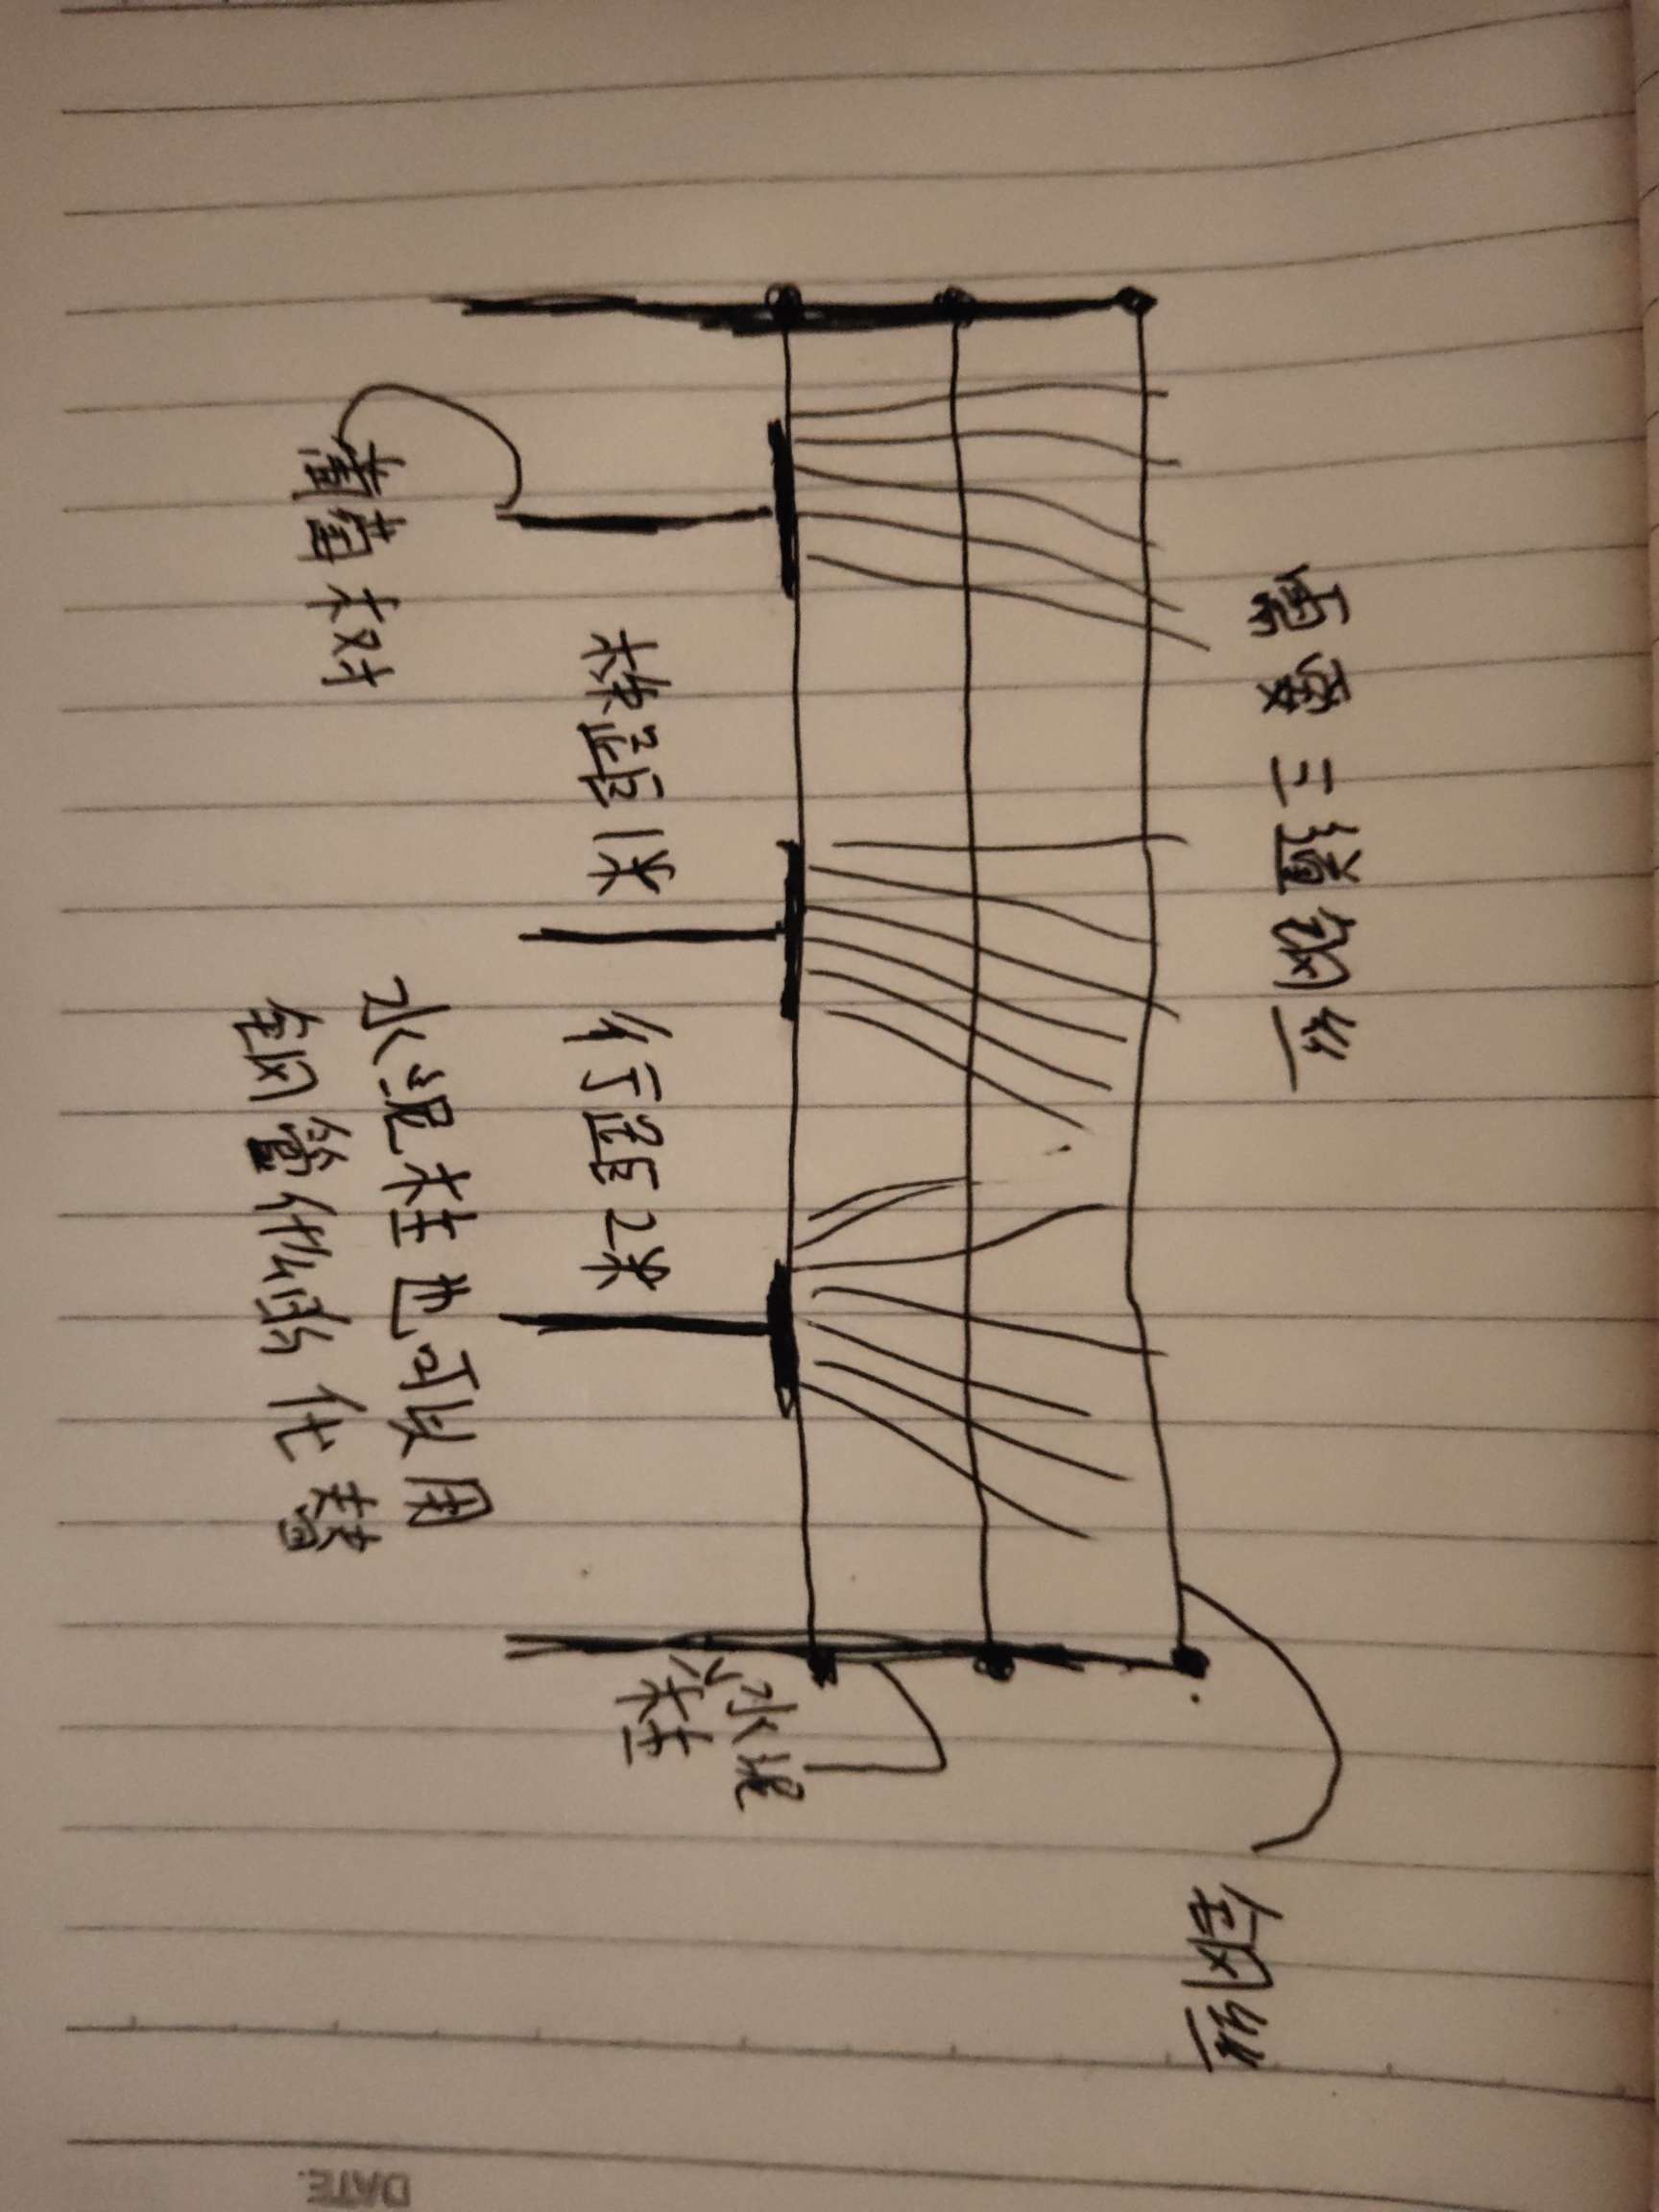 需要三道钢丝
钢丝
水泥
柱
株距1米
行距2米
葡萄树
水泥柱也可以用
钢管什么的代替
DATE.